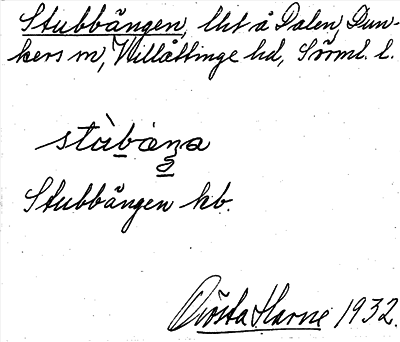 Stubbängen, lht å Dalen, Dun-
kers sn, Villåttinge hd, Sörml. l.
Stubbängen kb.
Gösta Harne 1932.